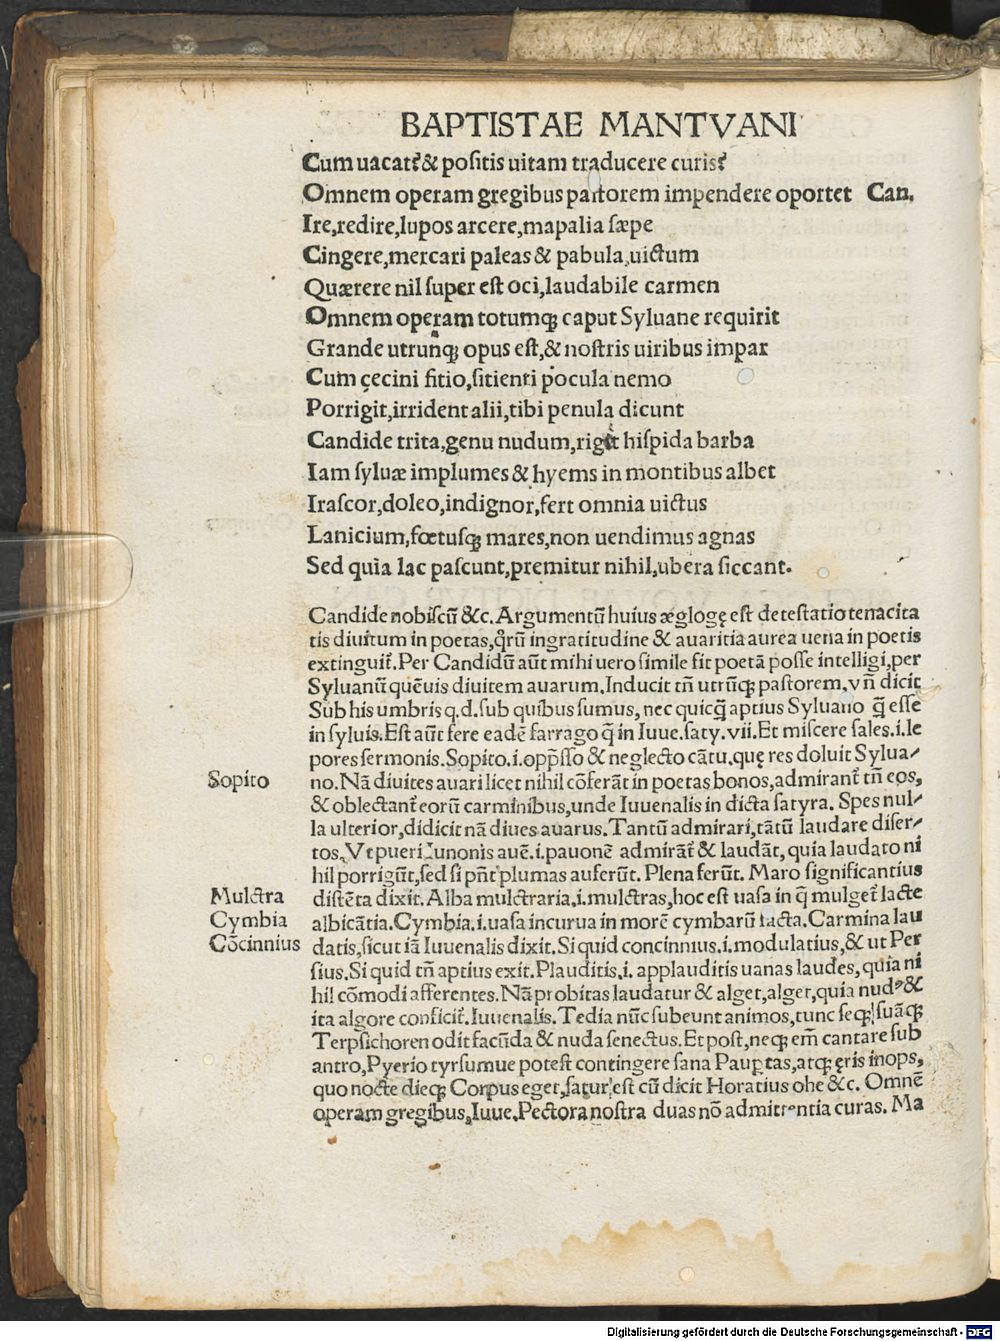 BAPTISTAE MANTVANI
Cum uacat? & positis uitam traducere curis?
Omnem operam gregibus pastorem impendere oportet Can.
Ire, redire, lupos arcere, mapalia sæpe
Cingere, mercari paleas & pabula, uictum
Quærere nil super est oci, laudabile carmen
Omnem operam totumq; caput Syluane requirit
Grande utrunq; opus est, & nostris uiribus impar
Cum cecini sitio, sitienti pocula nemo
Porrigit, irrident alii, tibi penula dicunt
Candide trita, genu nudum, riget hispida barba
Iam syluæ implumes & hyems in montibus albet
Irascor, doleo, indignor, fert omnia uictus
Lanicium, fœtusq; mares, non uendimus agnas
Sed quia lac pascunt, premitur nihil, ubera siccant.
Candide nobiscũ &c. Argumentũ huius æglogę est detestatio tenacita
tis diuitum in poetas, qrũ ingratitudine & auaritia aurea uena in poetis
extinguit̃. Per Candidũ aũt mihi uero simile fit poetã posse intelligi, per
Syluanũ quẽuis diuitem auarum. Inducit tñ utrũq; pastorem. vñ dicit
Sub his umbris q.d. sub quibus sumus, nec quicq̃ aptius Syluano q̃ esse
in syluis. Est aũt fere eadẽ farrago q̃ in Iuue. saty. vii. Et miscere sales. i. le
pores sermonis. Sopito. i. opp̃sso & neglecto cãtu. quę res doluit Sylua-
Sopito
no. Nã diuites auari licet nihil cõferãt in poetas bonos, admirant̃ tñ eos,
& oblectant̃ eorũ carminibus, unde Iuuenalis in dicta satyra. Spes nul-
la ulterior, didicit nã diues auarus. Tantũ admirari, tãtũ laudare diser-
tos, Vt pueri Iunonis auẽ. i. pauonẽ admirãt̃ & laudãt, quia laudato ni
hil porrigũt, sed si pñt plumas auferũt. Plena ferũt. Maro significantius
Mulctra
distẽta dixit. Alba mulctraria. i. mulctras, hoc est uasa in q̃ mulget̃ lacte
Cymbia
albicãtia. Cymbia. i. uasa incurua in morẽ cymbarũ facta. Carmina lau
Cõcinnius
datis, sicut iã Iuuenalis dixit. Si quid concinnius. i. modulatius, & ut Per
sius. Si quid tñ aptius exit. Plauditis. i. applauditis uanas laudes, quia ni
hil cõmodi afferentes. Nã probitas laudatur & alget, alget, quia nudꝰ &
ita algore conficit̃. Iuuenalis. Tedia nũc subeunt animos, tunc seq; suãq;
Terpsichoren odit facũda & nuda senectus. Et post, neq; em̃ cantare sub
antro, Pyerio tyrsumue potest contingere sana Paup̱tas, atq; ęris inops,
quo nocte dieq; Corpus eget, satur est cũ dicit Horatius ohe &c. Omnẽ
operam gregibus, Iuue. Pectora nostra duas nõ admittentia curas. Ma
Digitalisierung gefördert durch die Deutsche Forschungsgemeinschaft - DFG